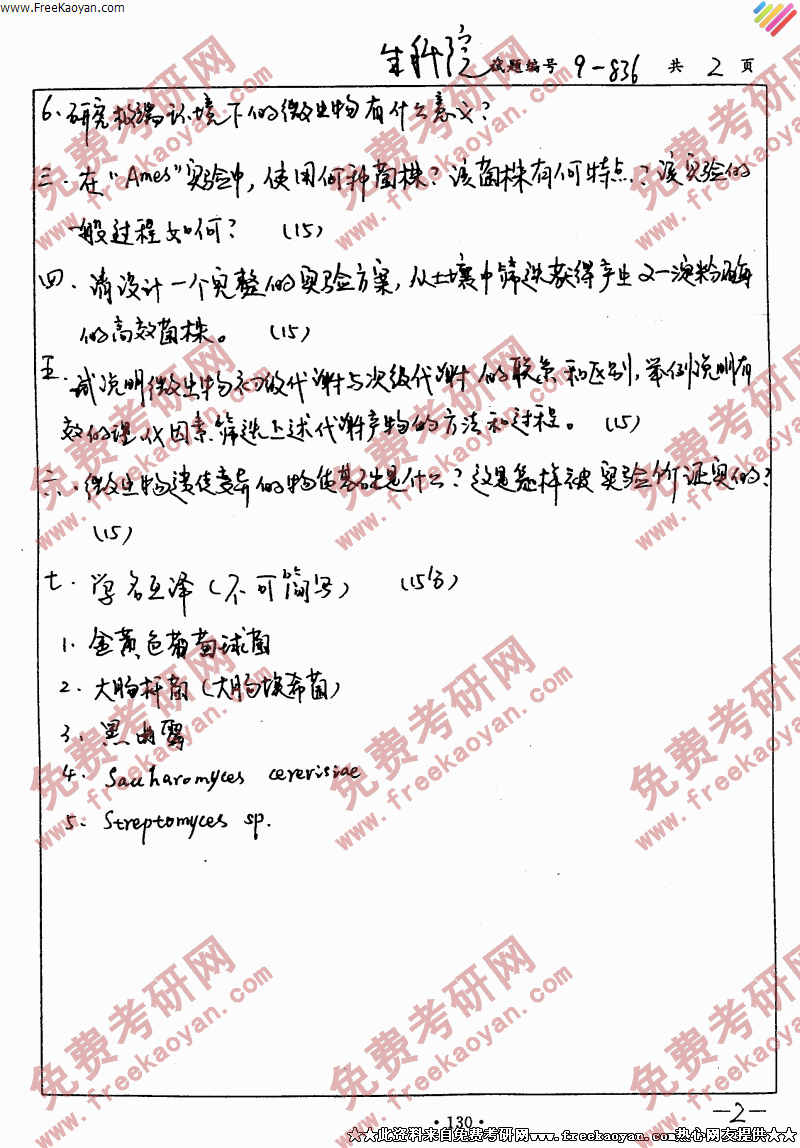 www.FreeKaoyan.com
生科院 试题编号 9-836 共 2 页
6. 研究极端环境下的微生物有什么意义?
三. 在"Ames"实验中, 使用何种菌株? 该菌株有何特点? 该实验的
一般过程如何? (15)
四. 请设计一个完整的实验方案, 从土壤中筛选获得产生α-淀粉酶
的高效菌株。 (15)
五. 试说明微生物初级代谢与次级代谢的联系和区别, 举例说明有
效的理、化因素筛选上述代谢产物的方法和过程。 (15)
六. 微生物遗传变异的物质基础是什么? 这是怎样被实验所证实的?
(15)
七. 学名互译 (不可简写) (15分)
1. 金黄色葡萄球菌
2. 大肠杆菌 (大肠埃希菌)
3. 黑曲霉
4. Saccharomyces cerevisiae
5. Streptomyces sp.
免费考研网
www.freekaoyan.com
-2-
· 130 ·
★★此资料来自免费考研网www.freekaoyan.com热心网友提供★★